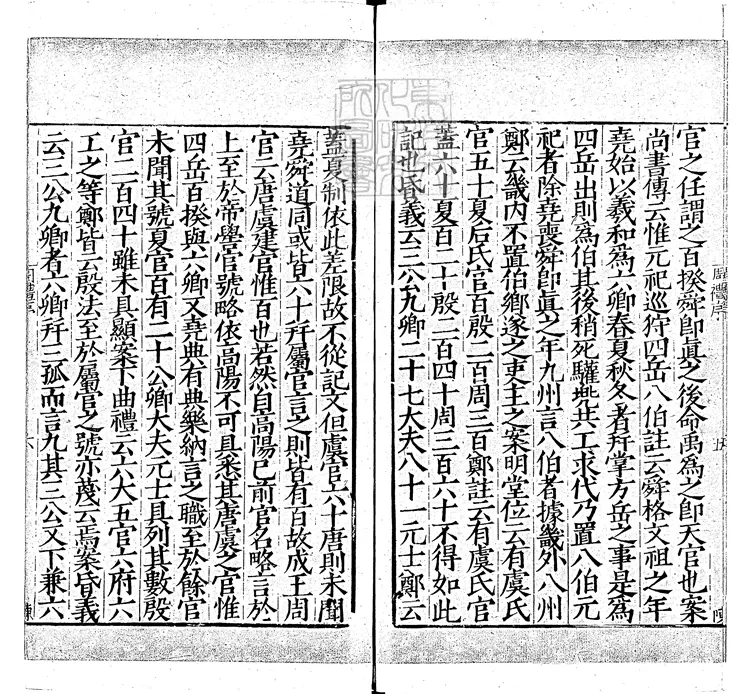 官之任謂之百揆舜卽眞之後命禹爲之卽天官也案
尚書傳云惟元祀巡狩四岳八伯註云舜格文祖之年
堯始以羲和爲六卿春夏秋冬者幷掌方岳之事是爲
四岳出則爲伯其後稍死驩㙇共工求代乃置八伯元
祀者除堯喪舜卽眞之年九州言八伯者據畿外八州
鄭云畿內不置伯鄉遂之吏主之案明堂位云有虞氏
官五十夏后氏官百殷二百周三百鄭註云有虞氏官
蓋六十夏百二十殷二百四十周三百六十不得如此
記也昏義云三公九卿二十七大夫八十一元士鄭云
蓋夏制依此差限故不從記文但虞官六十唐則未聞
堯舜道同或皆六十幷屬官言之則皆有百故成王周
官云唐虞建官惟百也若然自高陽已前官名略言於
上至於帝嚳官號略依高陽不可具悉其唐虞之官惟
四岳百揆與六卿又堯典有典樂納言之職至於餘官
未聞其號夏官百有二十公卿大夫元士具列其數殷
官二百四十雖未具顯案下曲禮云六大五官六府六
工之等鄭皆云殷法至於屬官之號亦蔑云焉案昏義
云三公九卿者六卿幷三孤而言九其三公又下兼六